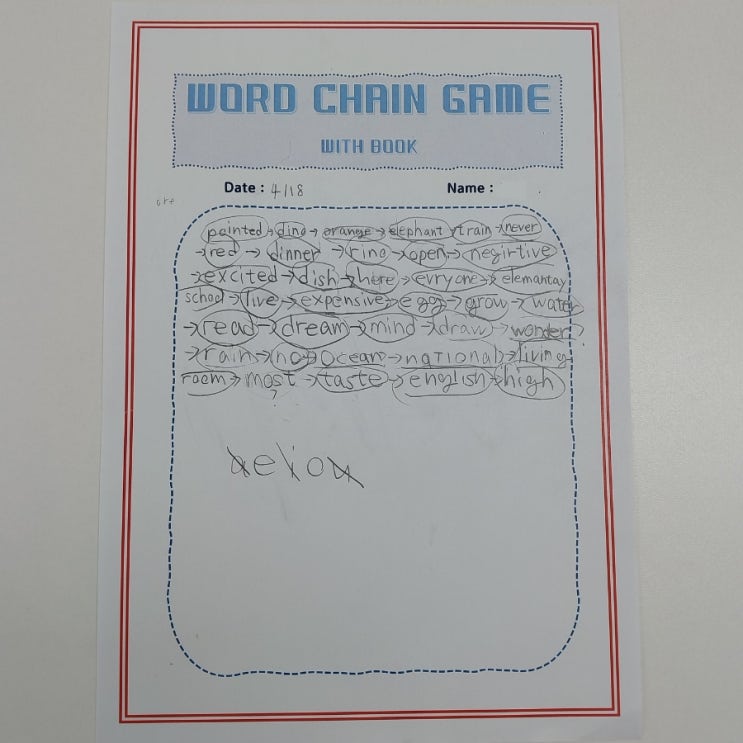 WORD CHAIN GAME
WITH BOOK
Date : 4/18 Name :
ore
pointed → dino → orange → elephant → train → never
→ red → dinner → rino → open → negirtive
→ excited → dish → here → evryone → elemantay
school → live → expensive → egg → grow → water
→ read → dream → mind → draw → wonder
→ rain → no → Ocean → national → living
room → most → taste → english → high
?
aeiou